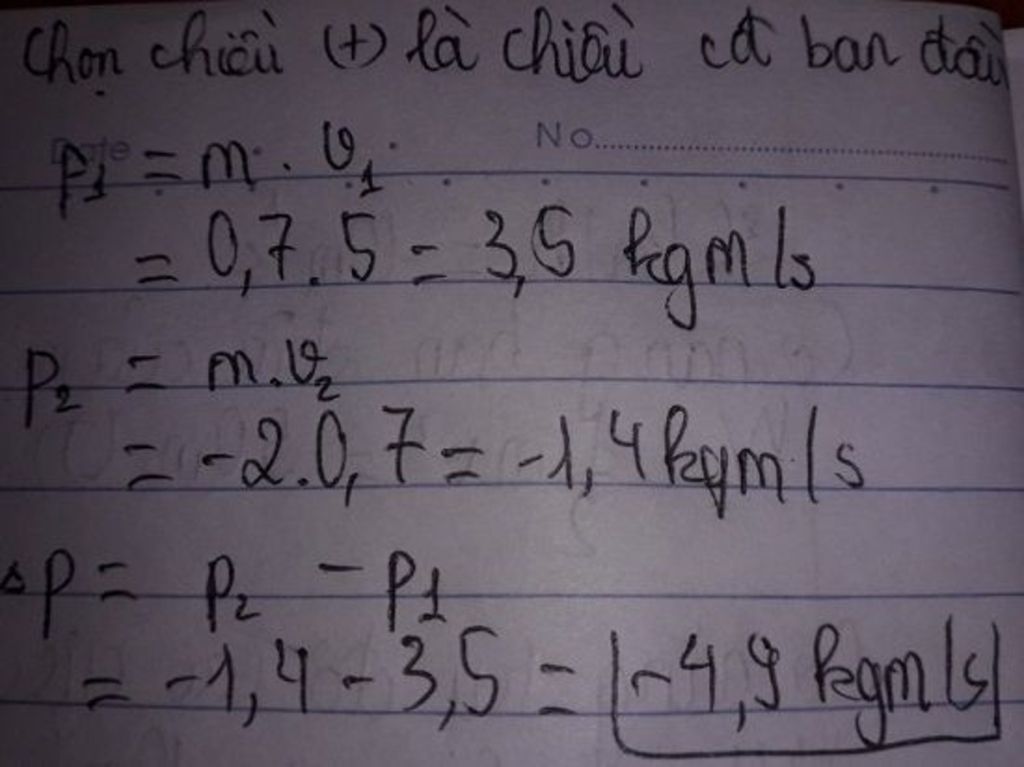 Chọn chiều (+) là chiều cđ ban đầu
Date
No
p₁ = m . v₁
= 0,7 . 5 = 3,5 kgm/s
p₂ = m.v₂
= -2.0,7 = -1,4 kgm/s
Δp = p₂ - p₁
= -1,4 - 3,5 = -4,9 kgm/s